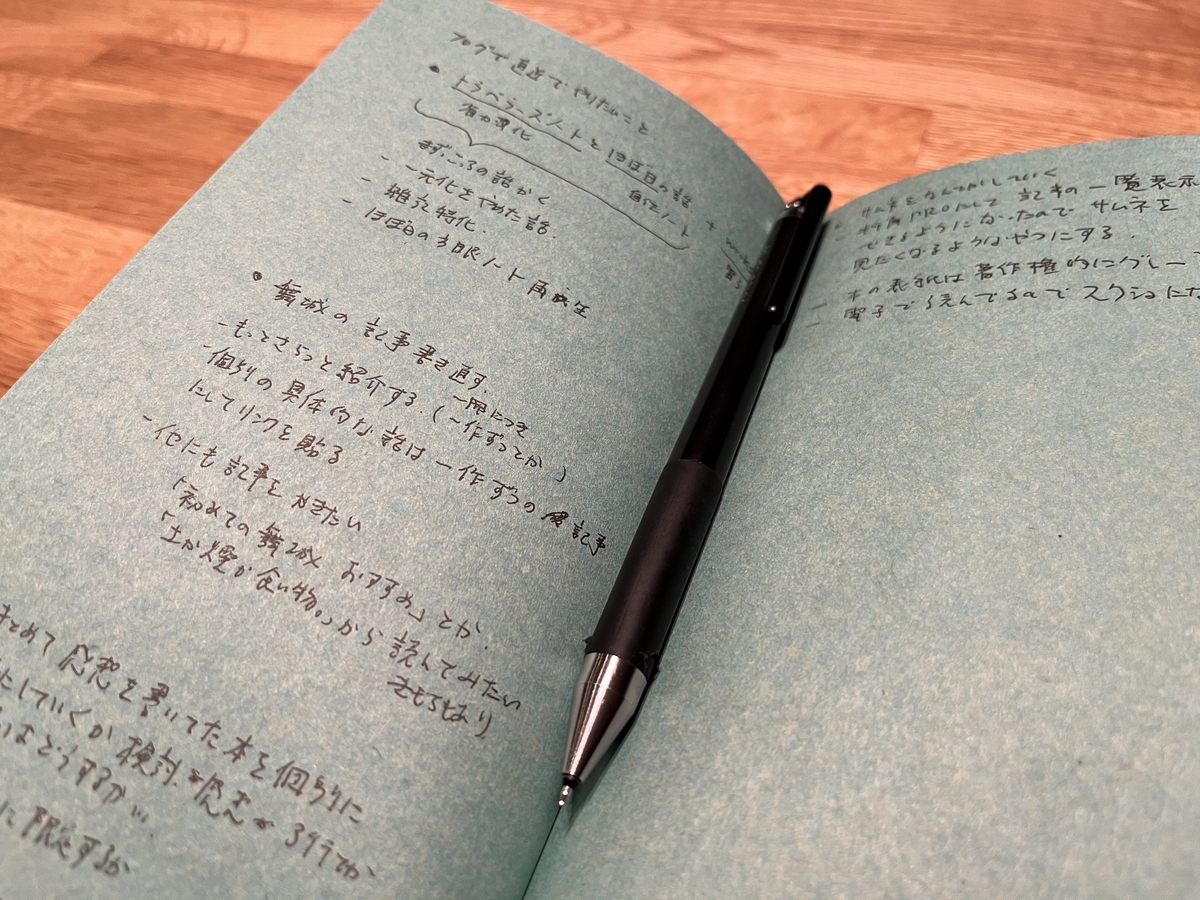 ブログで直近でやりたいこと
• トラベラーズノートとほぼ日の話 +
省力運化
自分ノート
まずころの話かく
- 一元化をやめた話.
- 雑記特化.
- ほぼ日の方眼ノート再誕生
• 舞城の記事書き直す.
- もっとさらっと紹介する. (一作ずつとか)
- 個別の具体的な話は一作ずつの記事
にしてリンクを貼る
- 他にも記事をかきたい
「初めての舞城おすすめ」とか.
「土か煙か食い物」から読んでみたい
きもちもあり
まとめて感想を書いてた本を個別に
にしていくか検討. 感想が3行とか
はどうするか….
に限定するか
サムネをかくにんしていく
- 有料PROにして記事の一覧表示
できるようになったのでサムネを
見たくなるようなやつにする.
- 本の表紙は著作権的にグレー
- 電子で読んでるのでスクショ